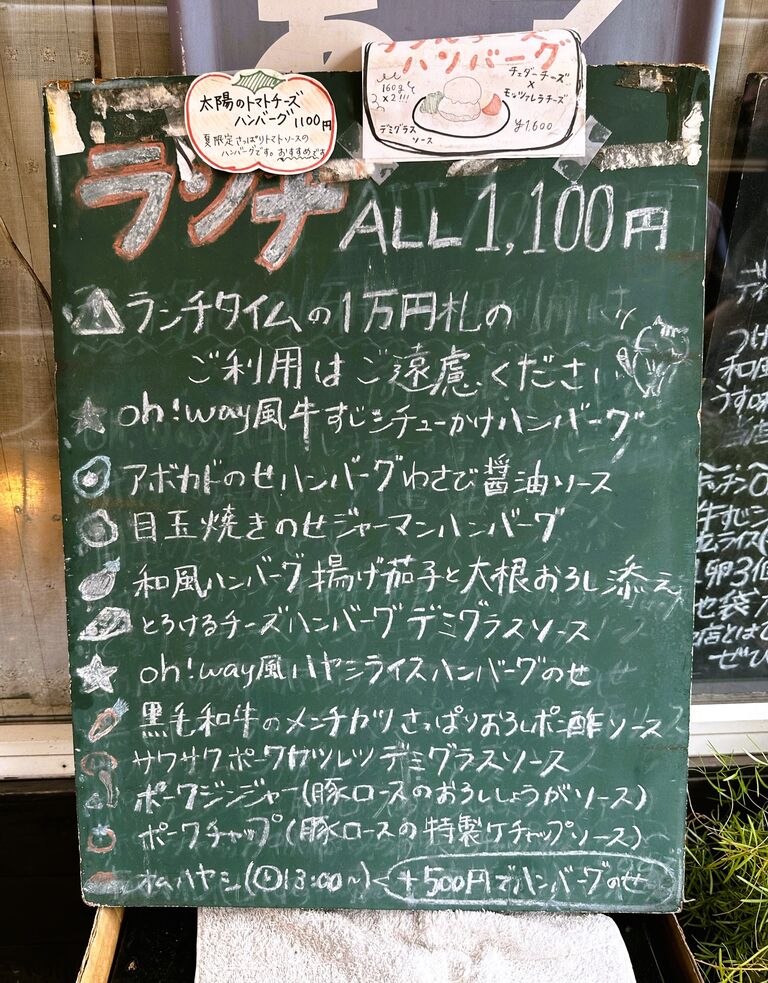 太陽のトマトチーズ
ハンバーグ 1100円
夏限定さっぱりトマトソースの
ハンバーグです。おすすめです
ハンバーグ
160g
×2!!!
チェダーチーズ
×
モッツァレラチーズ
デミグラス
ソース
¥1,600
ランチ ALL 1,100円
ランチタイムの1万円札の
ご利用はご遠慮ください
oh!way風牛すじシチューかけハンバーグ
アボカドのせハンバーグわさび醤油ソース
目玉焼きのせジャーマンハンバーグ
和風ハンバーグ揚げ茄子と大根おろし添え
とろけるチーズハンバーグデミグラスソース
oh!way風ハヤシライスハンバーグのせ
黒毛和牛のメンチカツさっぱりおろしポン酢ソース
サクサクポークカツレツデミグラスソース
ポークジンジャー(豚ロースのおろししょうがソース)
ポークチャップ(豚ロースの特製ケチャップソース)
オムハヤシ(13:00〜) +500円でハンバーグのせ
和風
牛すじ
卵3個
ぜひ